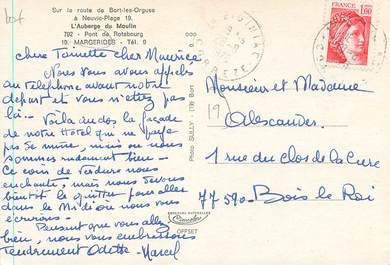 Sur la route de Bort-les-Orgues
à Neuvic-Plage 19.
L'Auberge du Moulin
702 - Pont de Rotabourg
19. MARGERIDES - Tél. 9
Chère Toinette cher Maurice
Nous vous avons appelés
au téléphone avant notre
départ et vous n'étiez pas
là.. Voilà au dos la façade
de notre Hôtel qui ne paye
pas de mine, mais où nous
sommes rudement bien -
Ce coin de verdure nous
enchante, mais nous devons
bientôt le quitter pour aller
dans le Midi où nous vous
écrirons -
Pensant que vous allez
bien, nous vous embrassons
tendrement Odette - Marcel
Photo SULLY - (19) Bort
COULEURS NATURELLES
OFFSET
REPUBLIQUE FRANÇAISE
1,00
CORREZE
19
Monsieur et Madame
Alexandre
1 rue du clos de la Cure
77590 - Bois le Roi